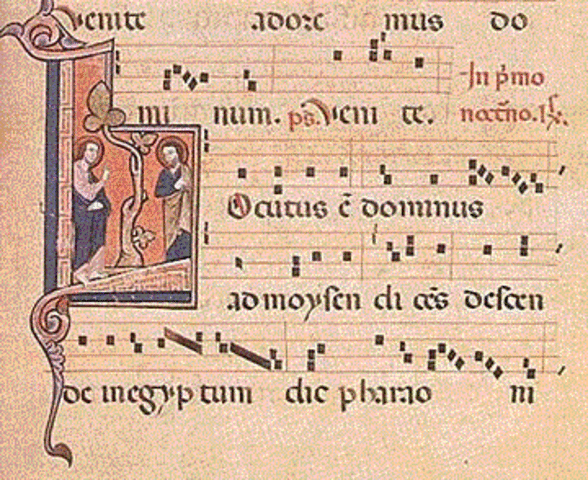 venite adore mus do
mi num. ps. Veni te. In p̄mo
noct̄no. Ɽ.
Ocutus ē dominus
ad moysen di cēs descen
de in egyp tum dic pharao ni